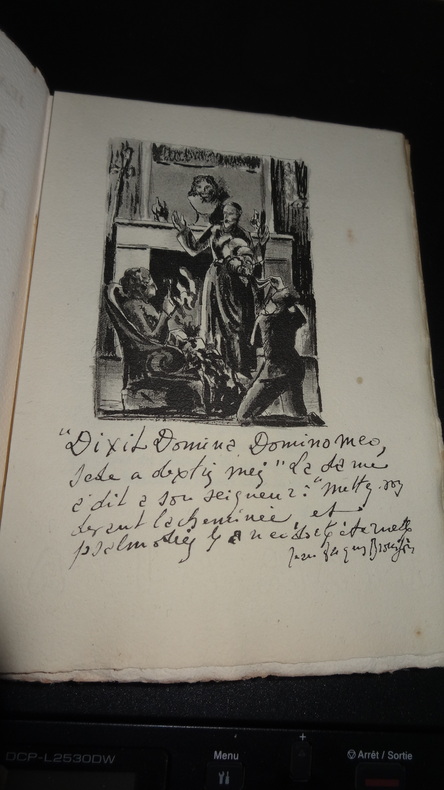 "Dixit Domina Domino meo,
sede a dextris meis" La dame
a dit a son seigneur : "mettez-vous
devant la cheminée et
psalmodiez
Jean-Jacques Brousson
DCP-L2530DW
Menu
+
Arrêt / Sortie